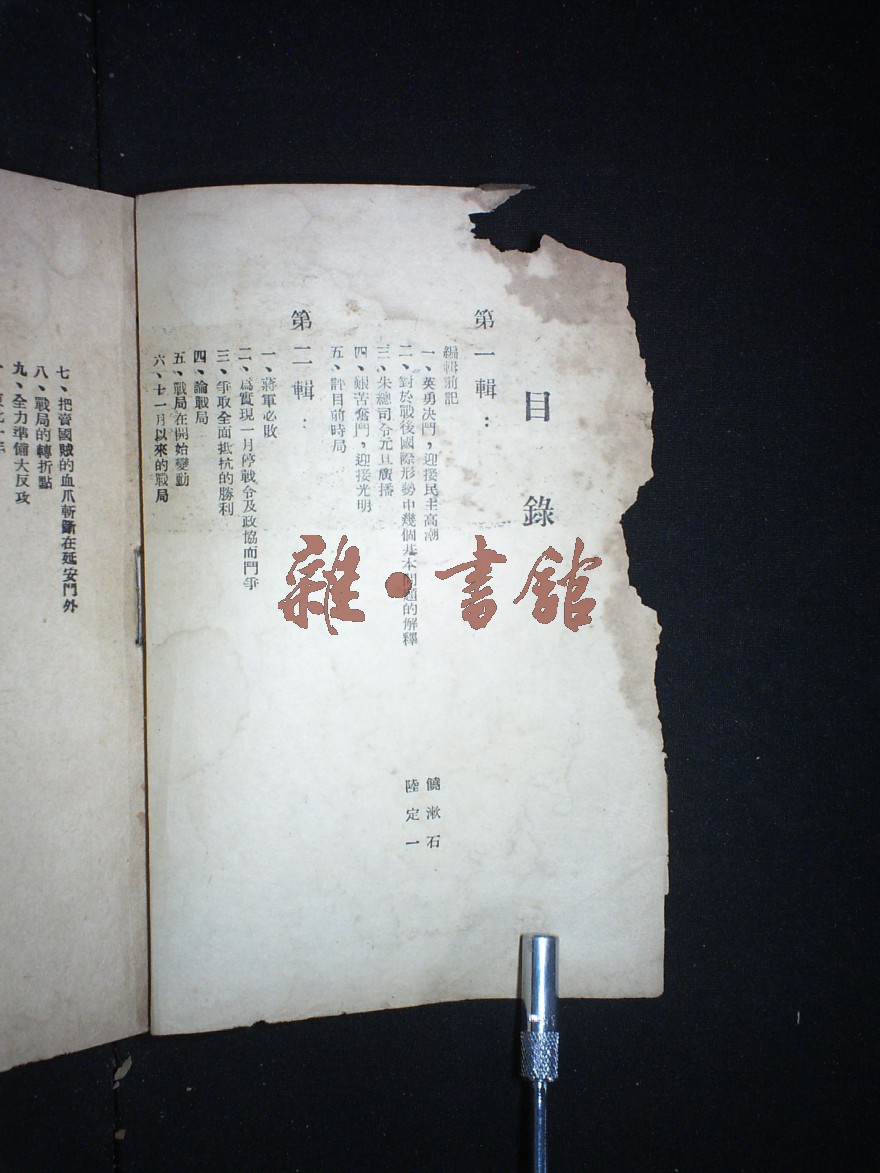 目錄
第一輯：
編輯前記
一、英勇決鬥，迎接民主高潮 饒漱石
二、對於戰後國際形勢中幾個基本問題的解釋 陸定一
三、朱總司令元旦廣播
四、艱苦奮鬥，迎接光明
五、評目前時局
第二輯：
一、蔣軍必敗
二、爲實現一月停戰令及政協而鬥爭
三、爭取全面抵抗的勝利
四、論戰局
五、戰局在開始變動
六、七一月以來的戰局
七、把賣國賊的血爪斬斷在延安門外
八、戰局的轉折點
九、全力準備大反攻
雜·書館